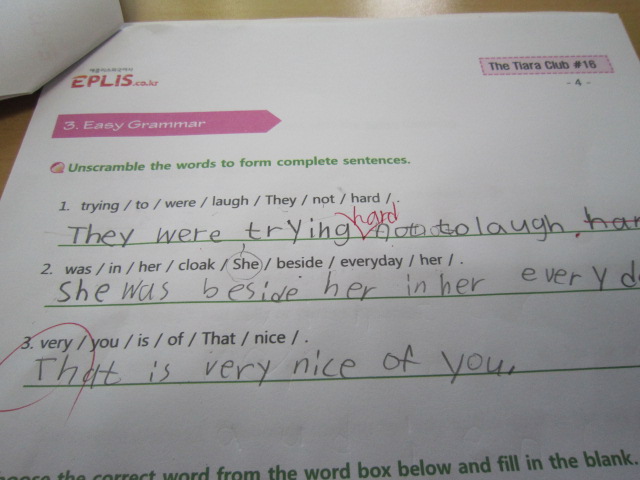 EPLIS.co.kr
The Tiara Club #16
- 4 -
3. Easy Grammar
Unscramble the words to form complete sentences.
1. trying / to / were / laugh / They / not / hard / .
hard
They were trying not to laugh.
2. was / in / her / cloak / She / beside / everyday / her / .
She was beside her in her every
3. very / you / is / of / That / nice / .
That is very nice of you.
the correct word from the word box below and fill in the blank.